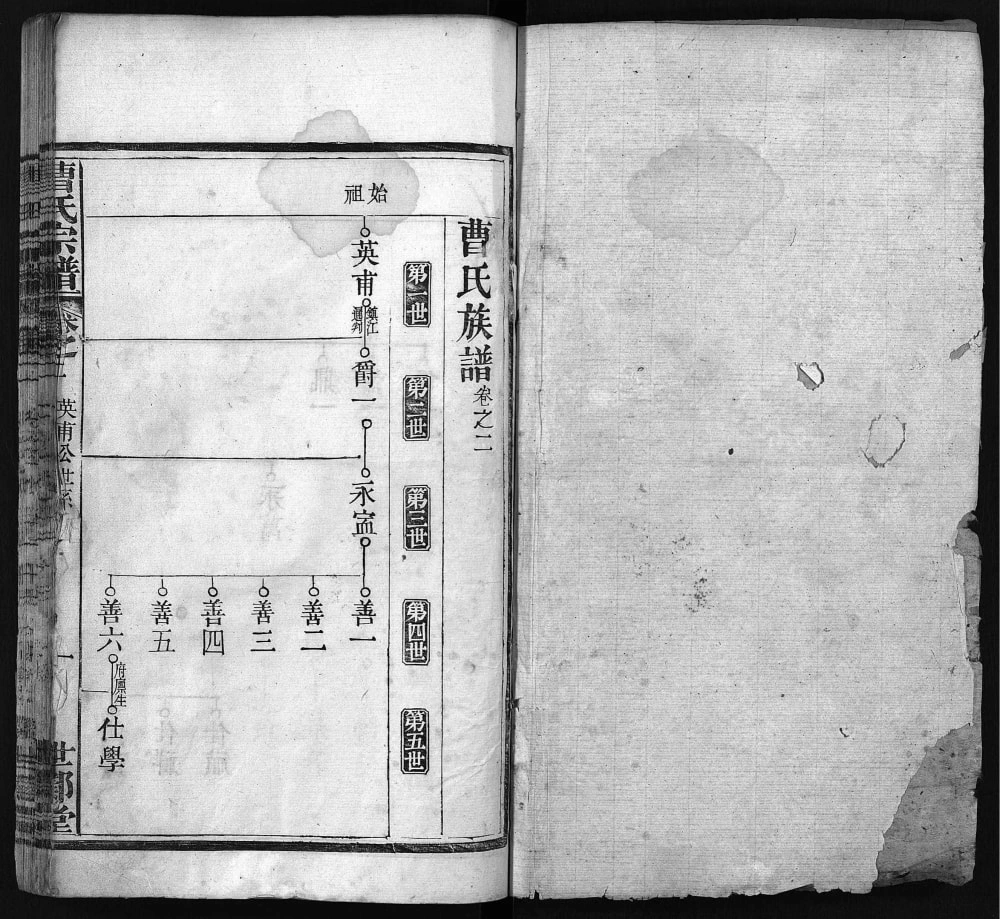 曹氏族譜卷之二
第一世
第二世
第三世
第四世
第五世
始祖
英甫
鎮江通判
爵一
永寍
善一
善二
善三
善四
善五
善六
府廪生
仕學
曹氏宗譜
卷之二
英甫公世系
一
世郁堂